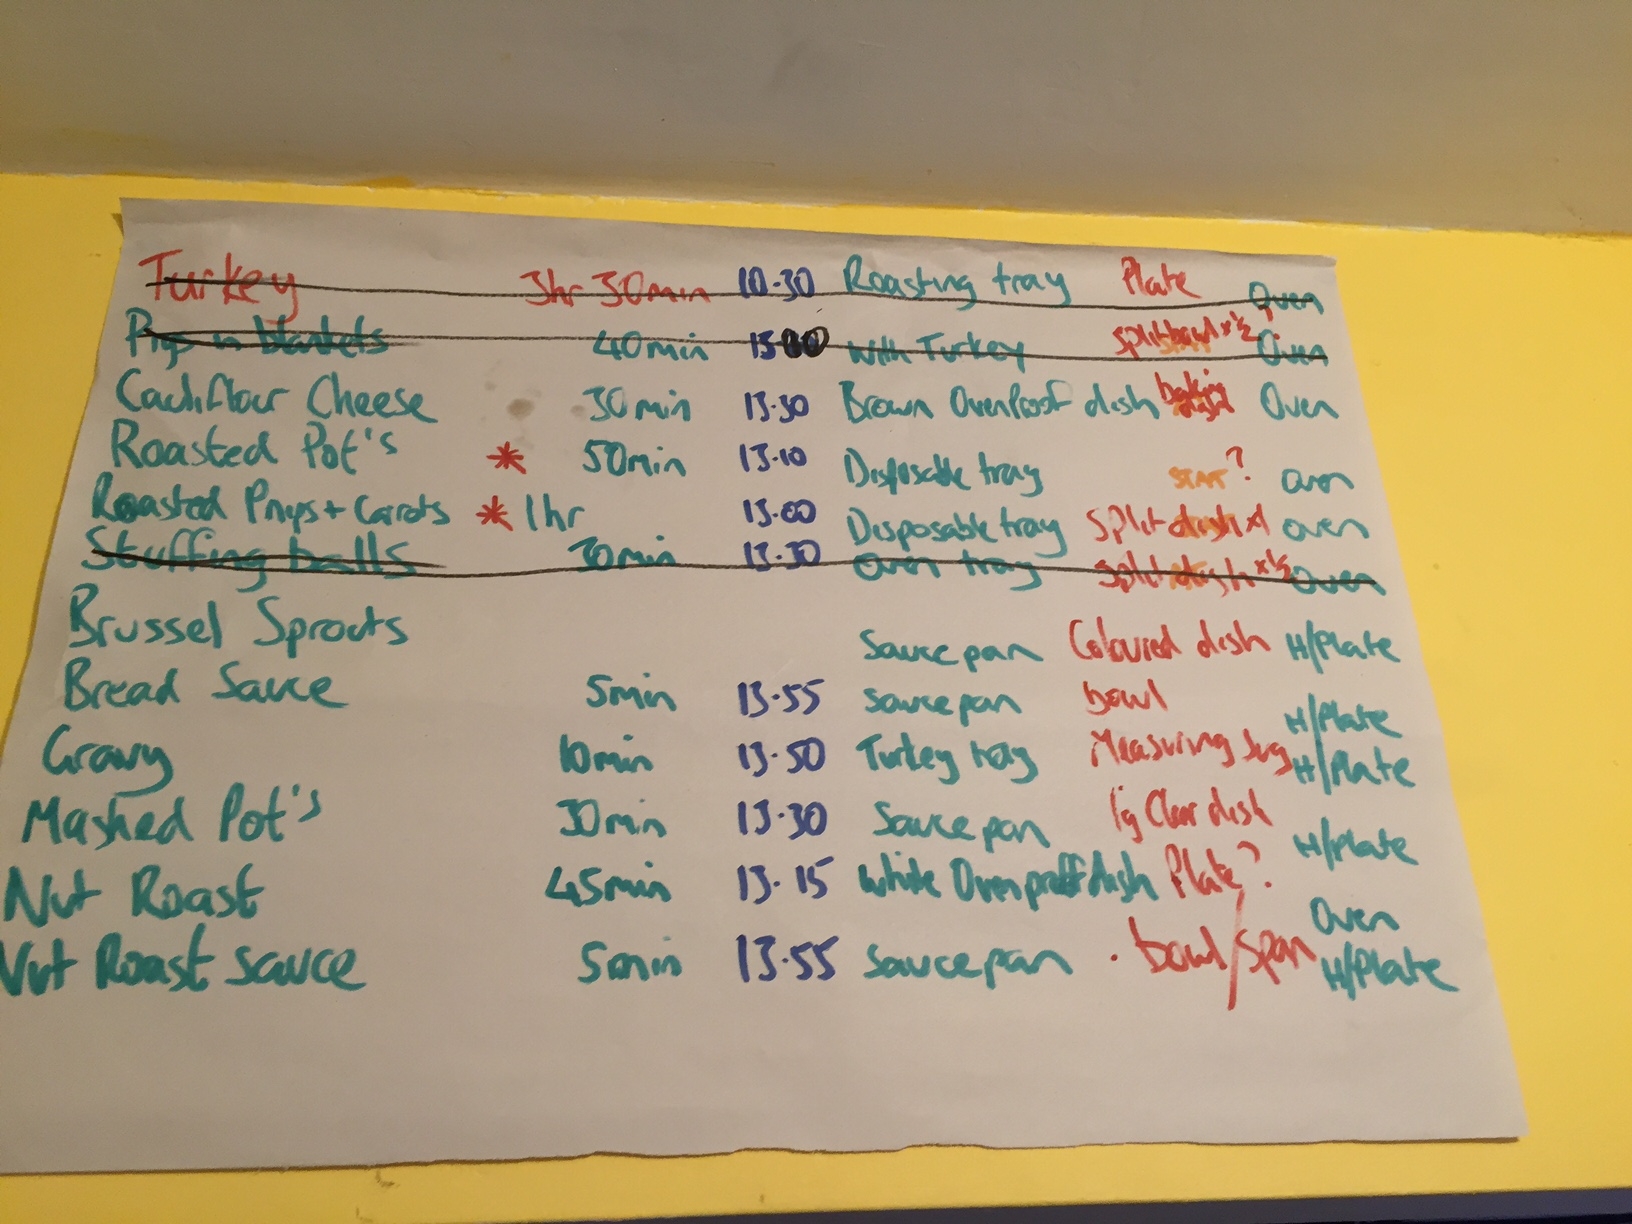 Turkey 3hr 30min 10.30 Roasting tray Plate Oven
Pigs in blankets 40min 13 With Turkey Split bowl x ½ ? Oven
Cauliflour Cheese 30min 13.30 Brown Ovenproof dish baking dish Oven
Roasted Pot's * 50min 13.10 Disposable tray START ? oven
Roasted Pnips + Carrots * 1hr 13.00 Disposable tray Split dish x1 oven
Stuffing balls 30min 13.30 Oven tray Split dish x ½ Oven
Brussel Sprouts Saucepan Coloured dish H/Plate
Bread Sauce 5min 13.55 Saucepan bowl H/Plate
Gravy 10min 13.50 Turkey tray Measuring Jug H/Plate
Mashed Pot's 30min 13.30 Saucepan lg Clear dish H/Plate
Nut Roast 45min 13.15 White Oven proff dish Plate? Oven
Nut Roast sauce 5min 13.55 Saucepan . bowl/span H/Plate